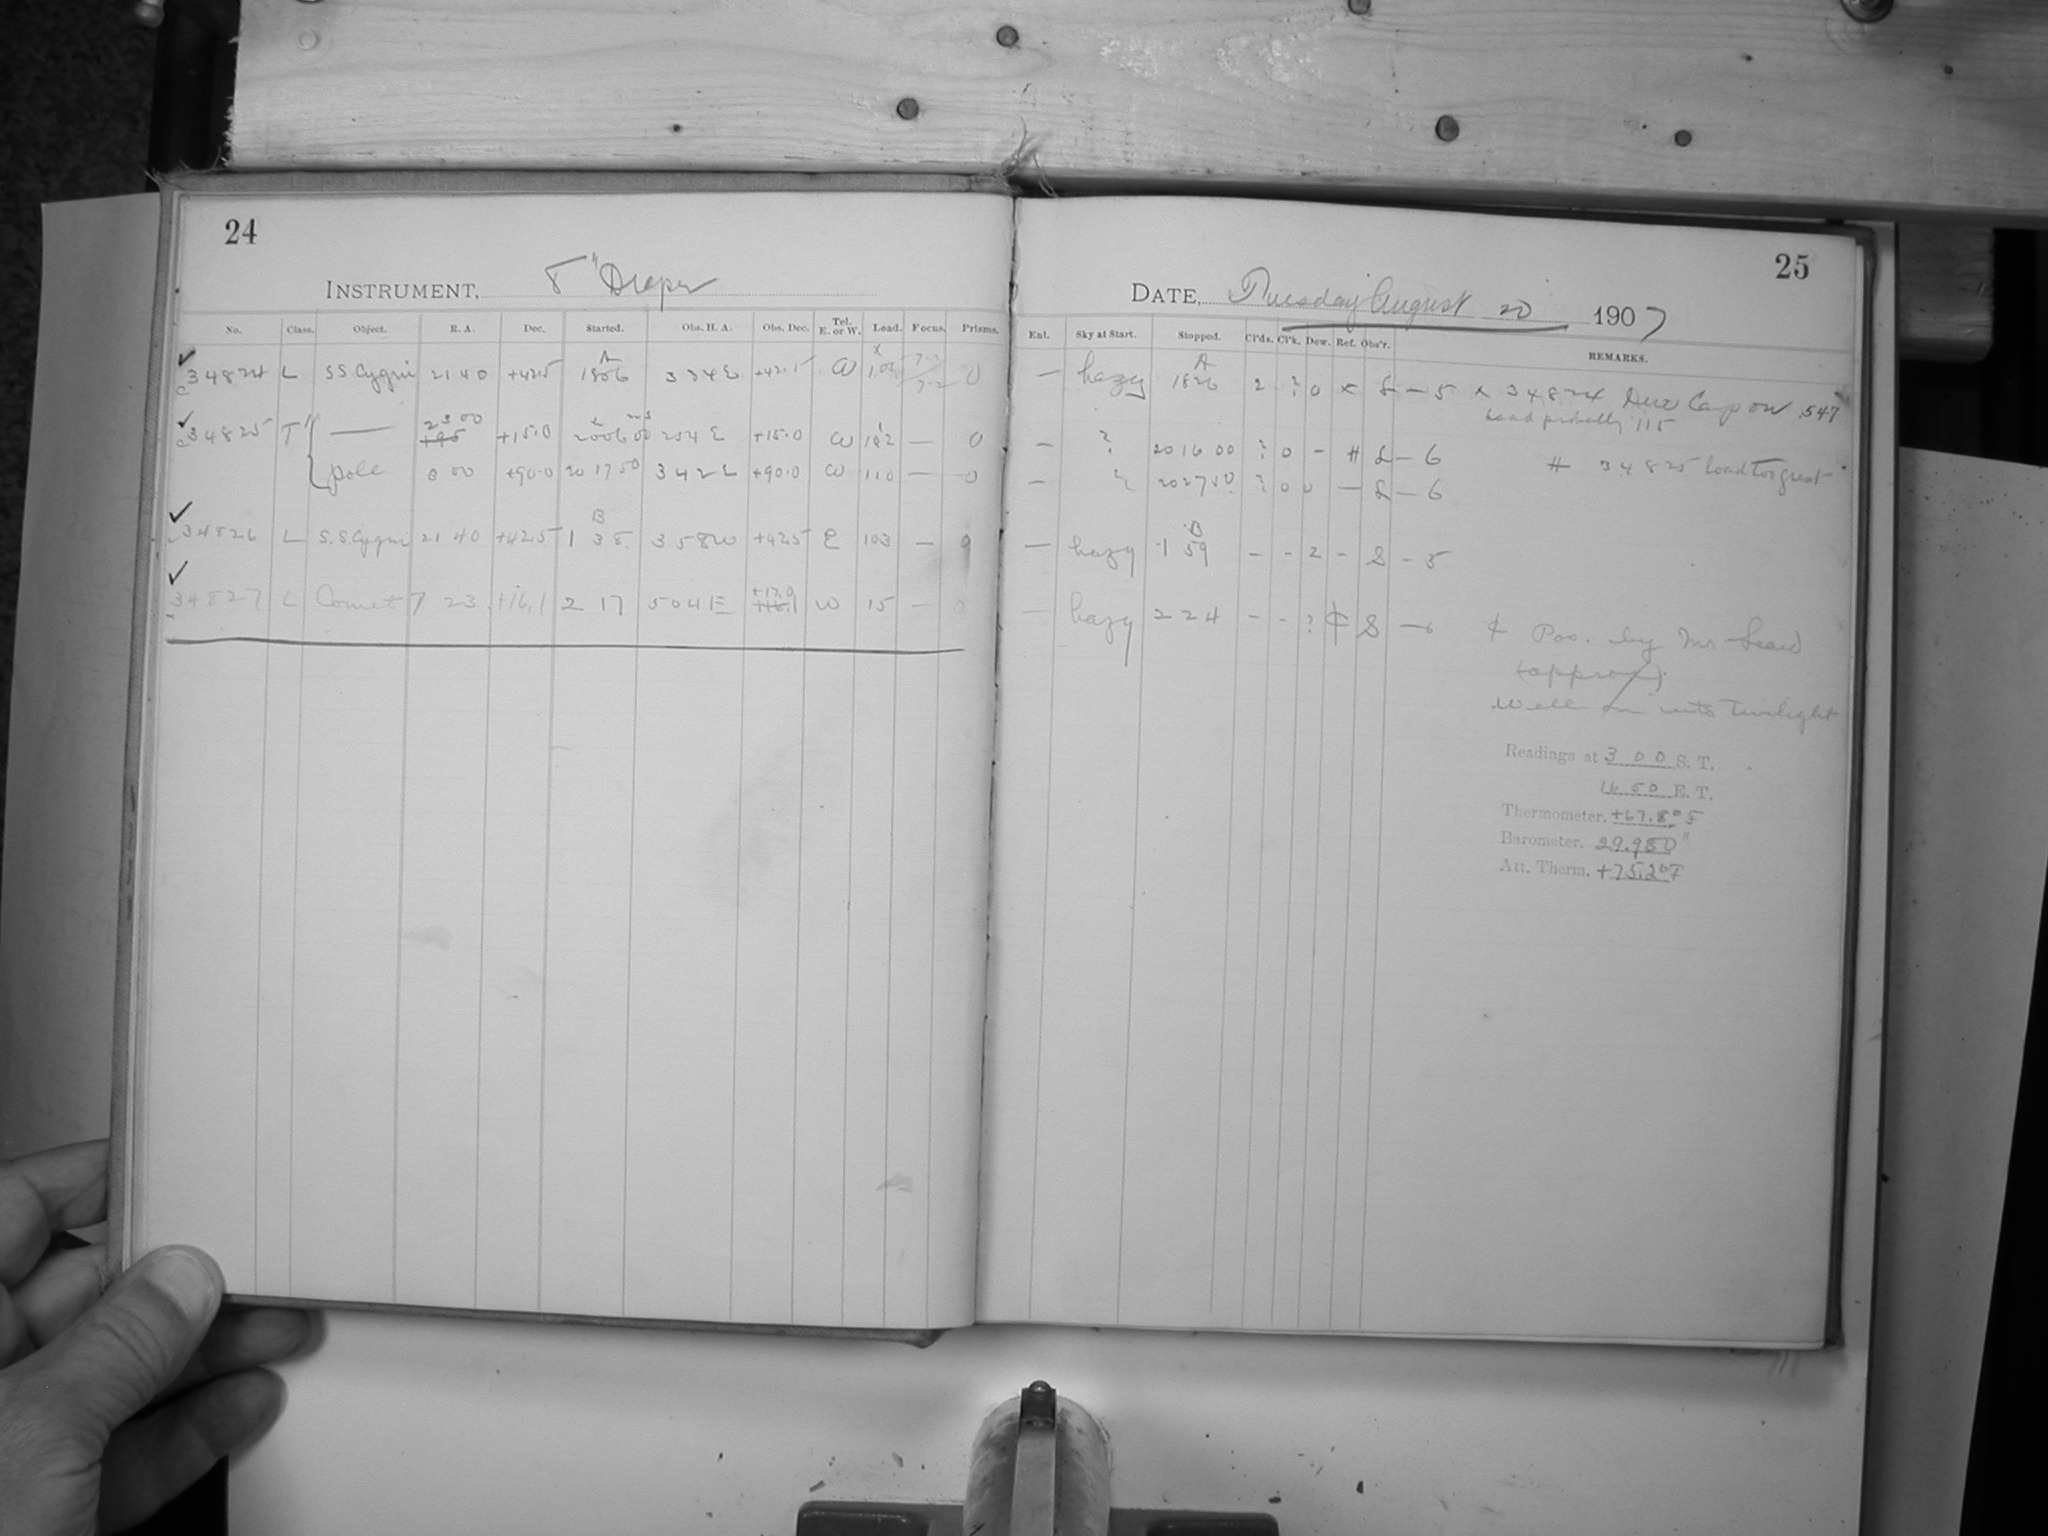 24
INSTRUMENT, 8" Draper
No. Class. Object. R. A. Dec. Started. Obs. H. A. Obs. Dec. Tel. E. or W. Load. Focus. Prisms.
A x
34824 L SS Cygni 21 40 +42.5 1806 3 34 E +42.5 W 7.2 0
34825 T 23 00 +15.0 20 06 00 2 54 E +15.0 W — 0
pole 0 00 +90.0 20 17 50 3 42 E +90.0 W 110 — 0
B
34826 L S.S. Cygni 21 40 +42.5 1 38 3 58 W +42.5 E 103 —
34827 L Comet 7 23 +16.1 2 17 5 04 E +17.0 W 15 — 0
25
DATE, Tuesday August 20 1907
Ent. Sky at Start. Stopped. Cl'ds. Cl'k. Dew. Ref. Obs'r. REMARKS.
A
— hazy 1826 2 ? 0 x — 5 x 34824 Dew Cap on .547
Load probably 115
— ? 20 16 00 ? 0 - # — 6 # 34825 load too great
— 20 27 50 ? 0 0 — — 6
B
— hazy 1 59 - - 2 - S - 5
— hazy 2 24 - - ? ¢ S — ¢ Pos. by Mr
(approx)
Well on into twilight
Readings at 3 00 S. T.
16 50 E. T.
Thermometer, +67.8° F
Barometer, 29.980"
Att. Therm. +75.2°F